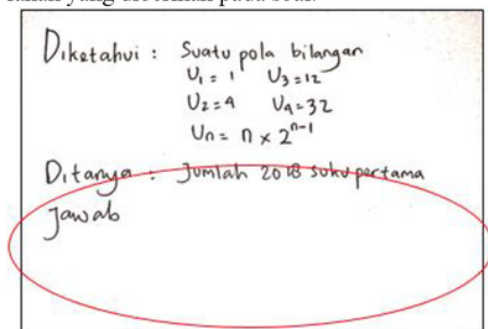 Diketahui : Suatu pola bilangan
U₁ = 1 U₃ = 12
U₂ = 4 U₄ = 32
Uₙ = n × 2ⁿ⁻¹
Ditanya : Jumlah 2018 suku pertama
Jawab